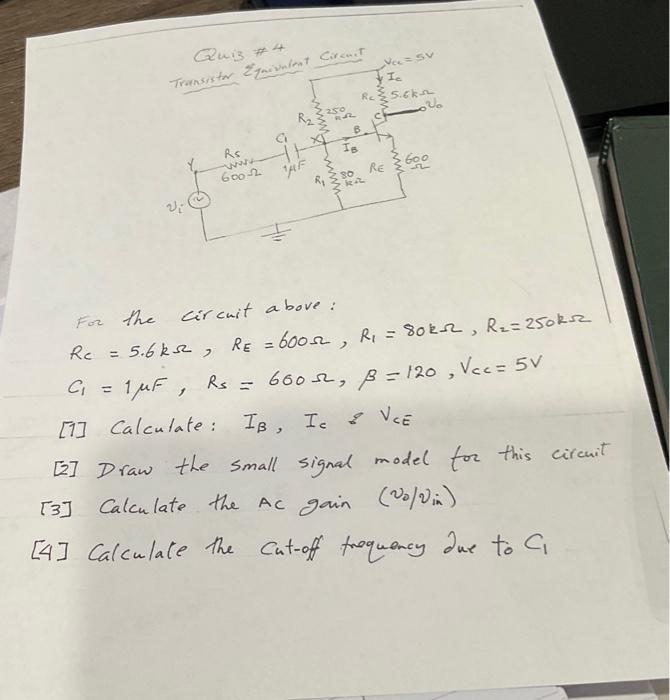 Quiz #4
Transistor Equivalent Circuit
Vcc = 5V
Ic
Rc 5.6kΩ
R2 250 kΩ
C
Vo
B
C1
X
IB
Rs
600Ω
1μF
R1 80 kΩ
RE 600 Ω
Vi
For the circuit above:
Rc = 5.6kΩ, RE = 600Ω, R1 = 80kΩ, R2 = 250kΩ
C1 = 1μF, Rs = 600Ω, β = 120, Vcc = 5V
[1] Calculate: IB, Ic & VCE
[2] Draw the small signal model for this circuit
[3] Calculate the AC gain (Vo/Vin)
[4] Calculate the cut-off frequency due to C1